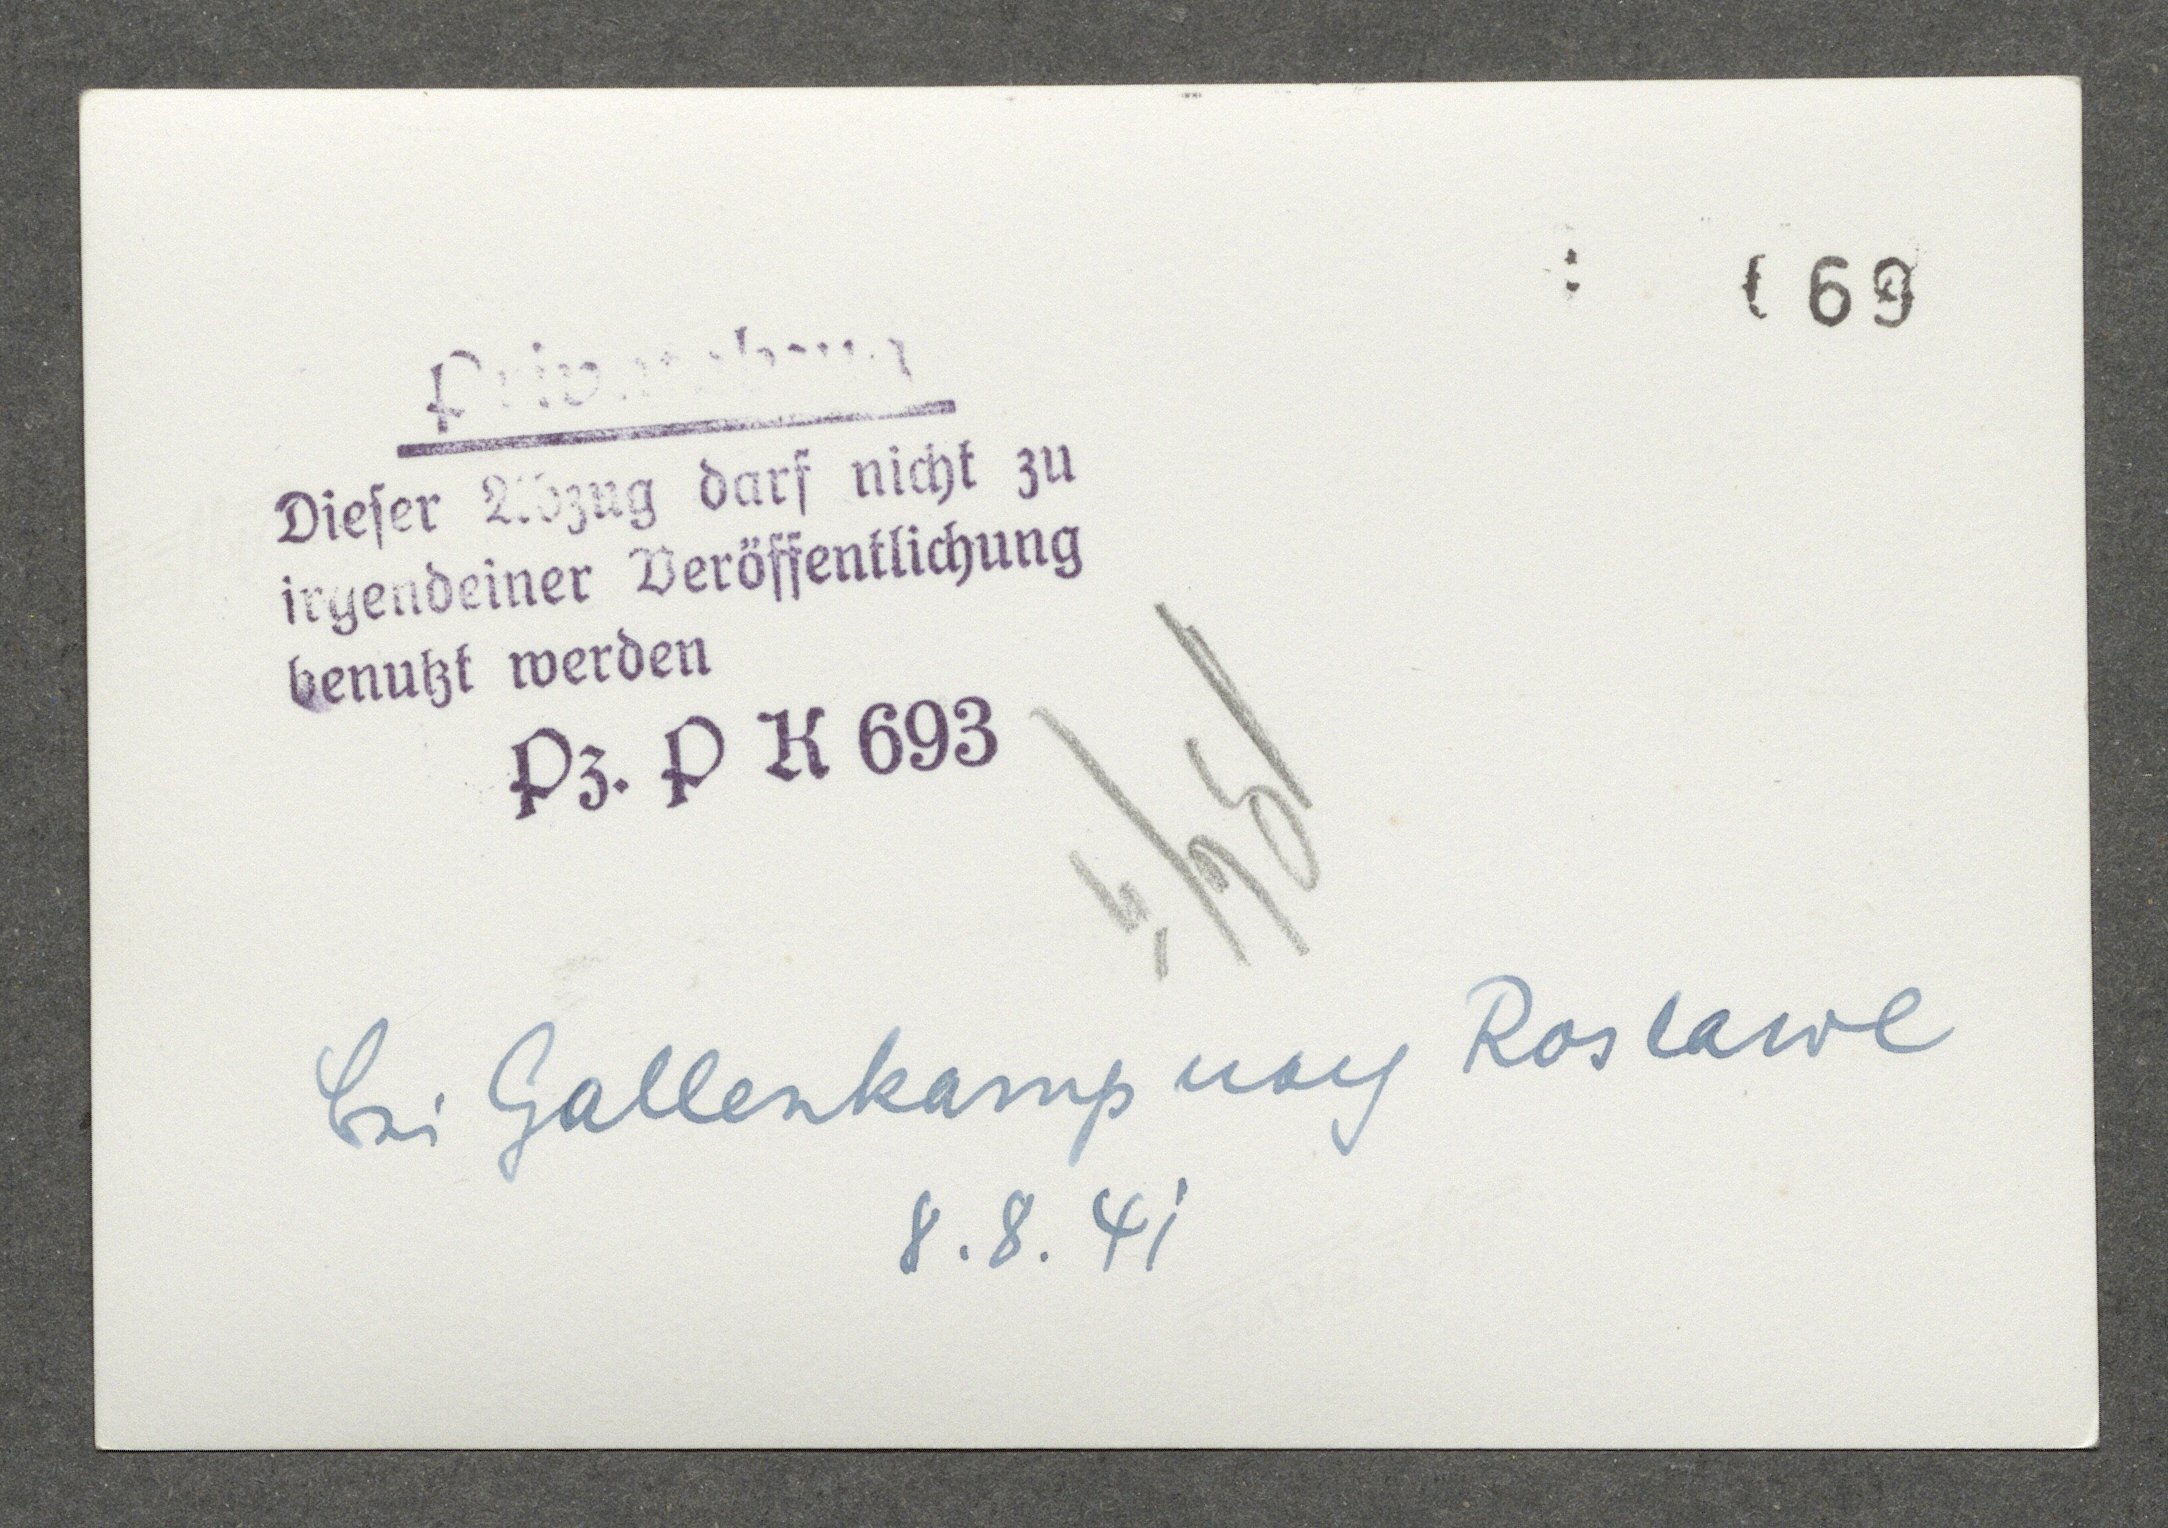 69
Dieser Abzug darf nicht zu
irgendeiner Veröffentlichung
benutzt werden
Pz. P K 693
bei Gallenkamp nach Roslawl
8.8.41